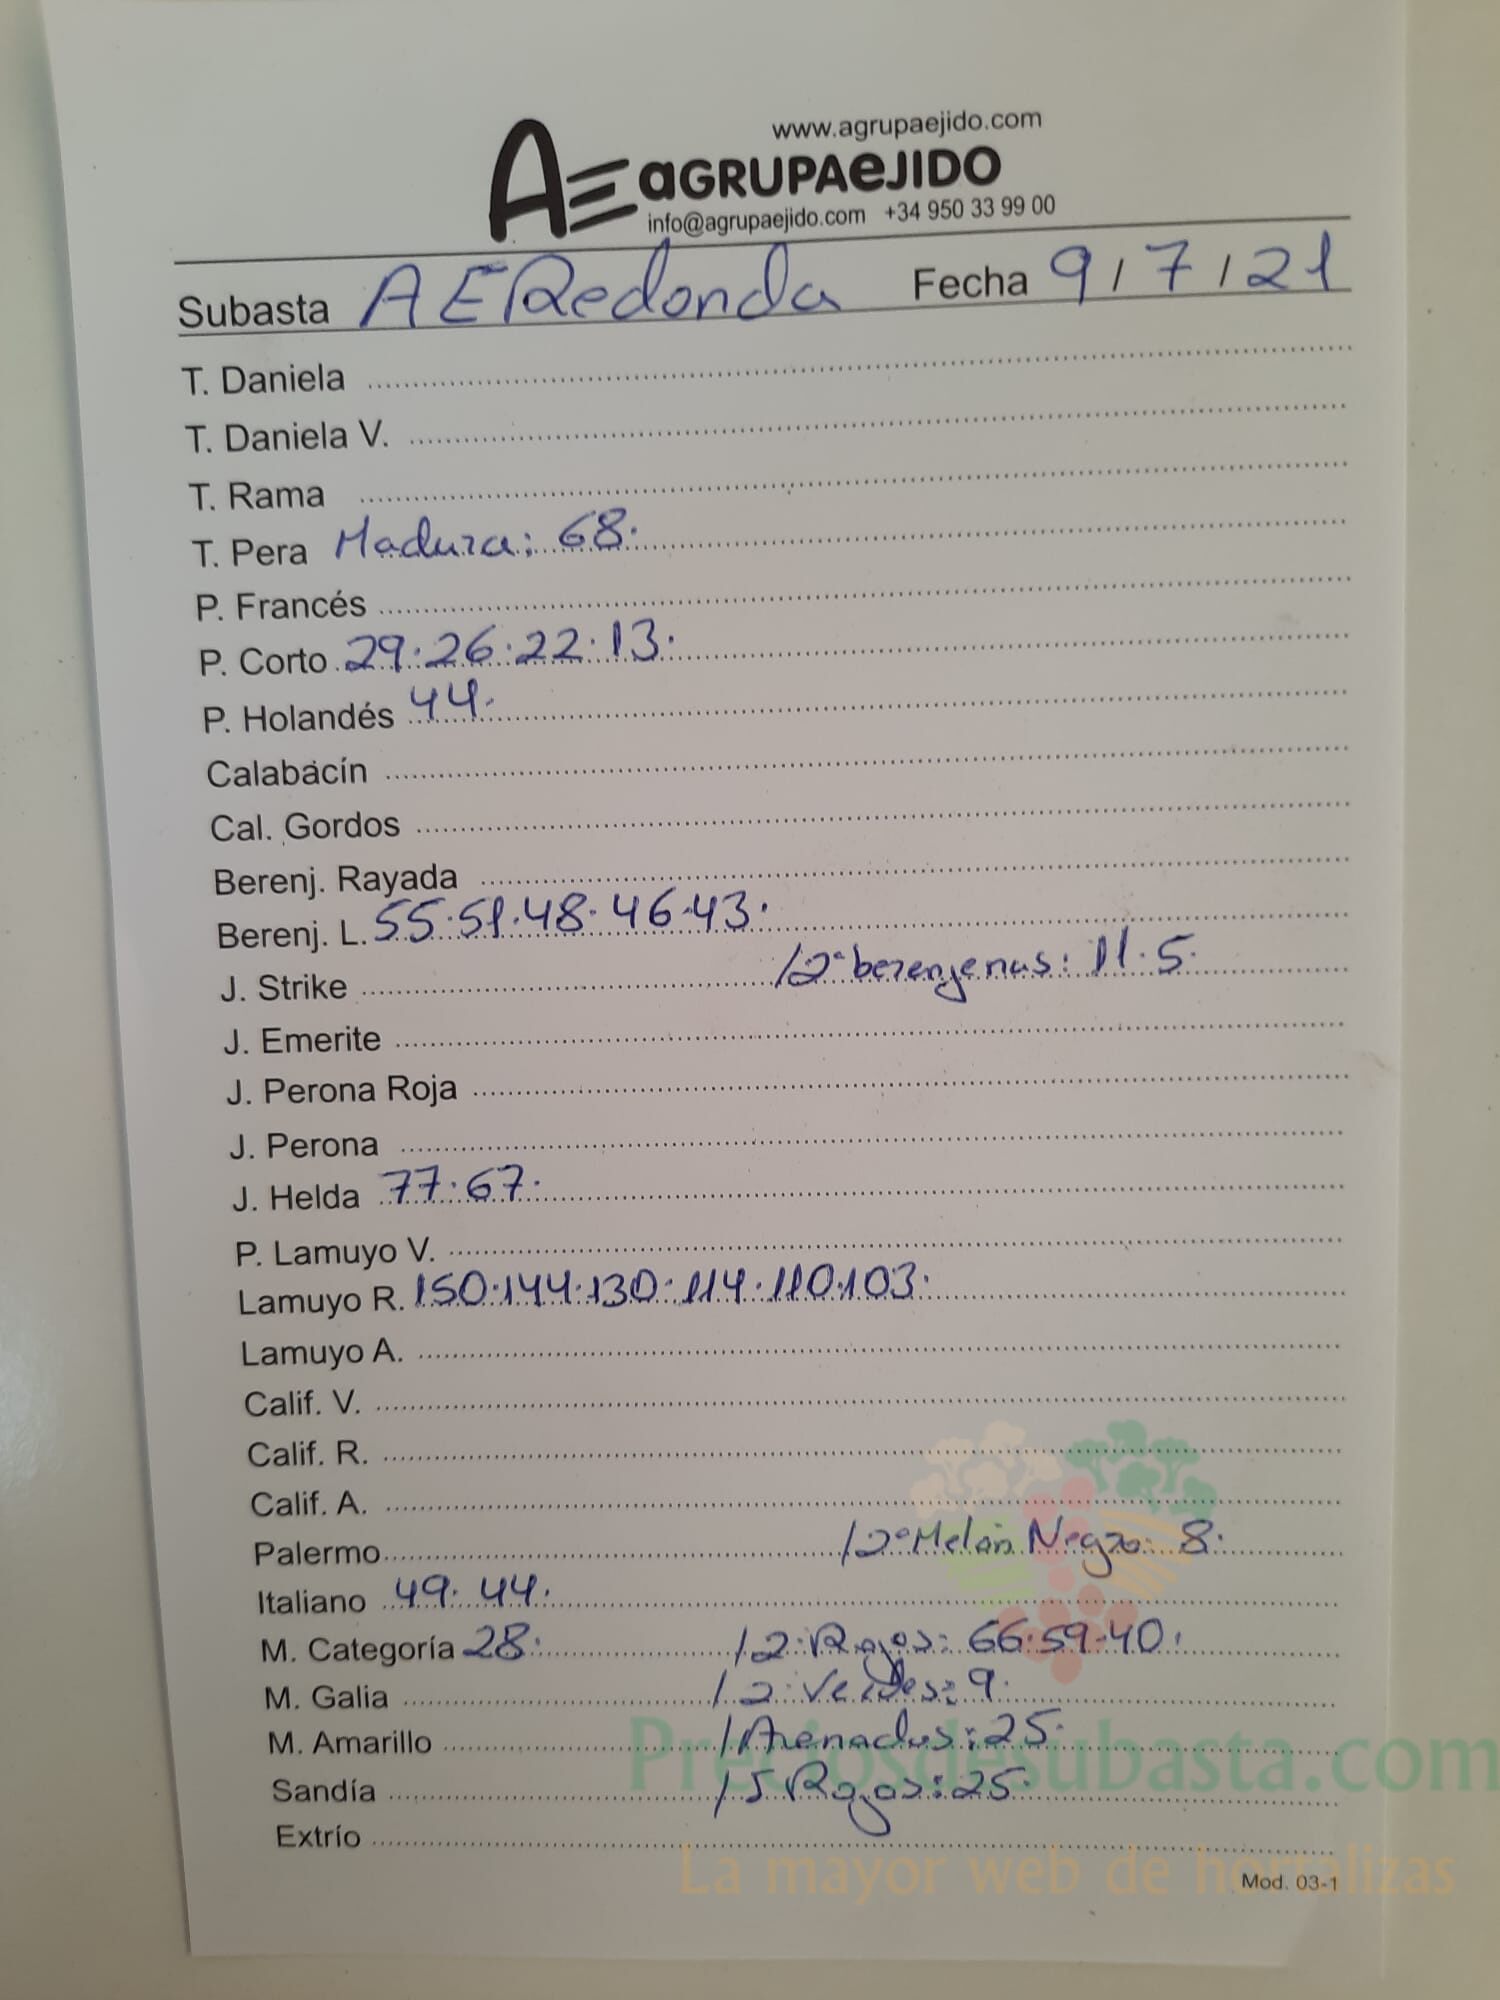 www.agrupaejido.com
AE aGRUPAeJIDO
info@agrupaejido.com +34 950 33 99 00
Subasta AERedonda Fecha 9/7/21
T. Daniela
T. Daniela V.
T. Rama
T. Pera Madura: 68.
P. Francés
P. Corto 29.26.22.13.
P. Holandés 44.
Calabacín
Cal. Gordos
Berenj. Rayada
Berenj. L. 55.51.48.46.43.
J. Strike /2ª berenjenas: 11.5.
J. Emerite
J. Perona Roja
J. Perona
J. Helda 77.67.
P. Lamuyo V.
Lamuyo R. 150.144.130.114.110.103.
Lamuyo A.
Calif. V.
Calif. R.
Calif. A.
Palermo /2ª Melón Negro: 8.
Italiano 49.44.
M. Categoría 28. /2. Rojos: 66.59.40.
M. Galia /2. Verdes: 9.
M. Amarillo /Arenados: 25.
Sandía /5 Rojos: 25.
Extrío
Mod. 03-1
Preciosdesubasta.com
La mayor web de hortalizas